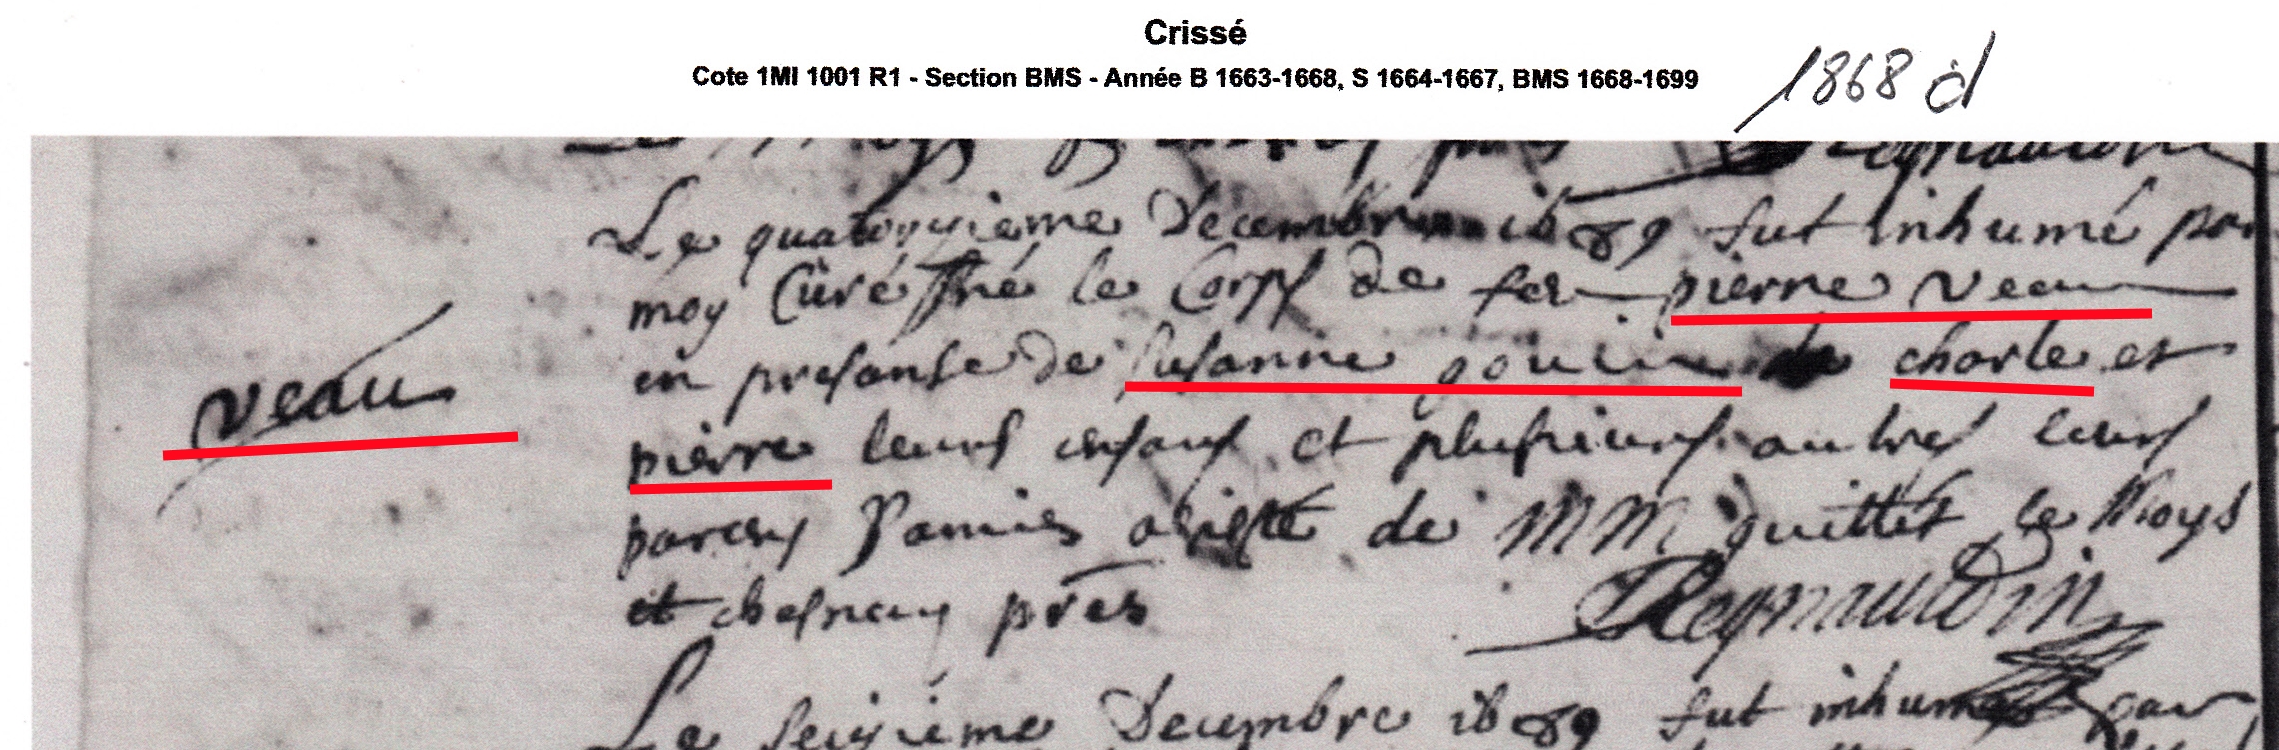 Crissé
Cote 1MI 1001 R1 - Section BMS - Année B 1663-1668, S 1664-1667, BMS 1668-1699
1868 d
Le quatorzieme Decembre 1689 fut inhumé par
moy Curé le Corps de feu pierre veau
veau
en presanse de susanne gouin de charle et
pierre leurs enfans et plusieurs autres leurs
parens amis de MM quittet le
et chesnay pres
Reynaudin
Le seizieme Decembre 1689 fut inhumé par